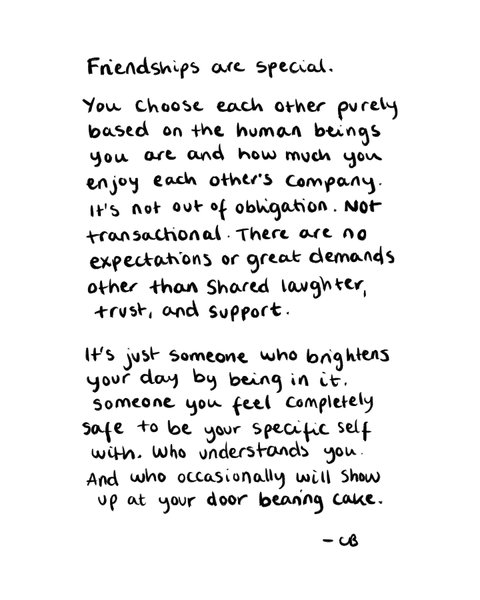 Friendships are special.
You choose each other purely
based on the human beings
you are and how much you
enjoy each other's company.
It's not out of obligation. Not
transactional. There are no
expectations or great demands
other than shared laughter,
trust, and support.
It's just someone who brightens
your day by being in it.
Someone you feel completely
safe to be your specific self
with. Who understands you.
And who occasionally will show
up at your door bearing cake.
- CB